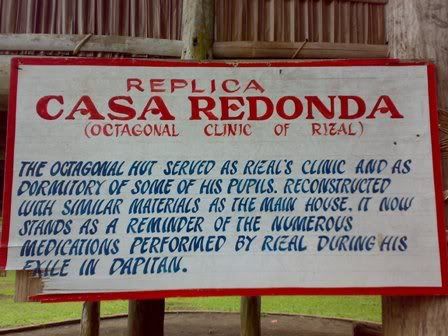 REPLICA
CASA REDONDA
(OCTAGONAL CLINIC OF RIZAL)
THE OCTAGONAL HUT SERVED AS RIZAL'S CLINIC AND AS
DORMITORY OF SOME OF HIS PUPILS. RECONSTRUCTED
WITH SIMILAR MATERIALS AS THE MAIN HOUSE. IT NOW
STANDS AS A REMINDER OF THE NUMEROUS
MEDICATIONS PERFORMED BY RIZAL DURING HIS
EXILE IN DAPITAN.